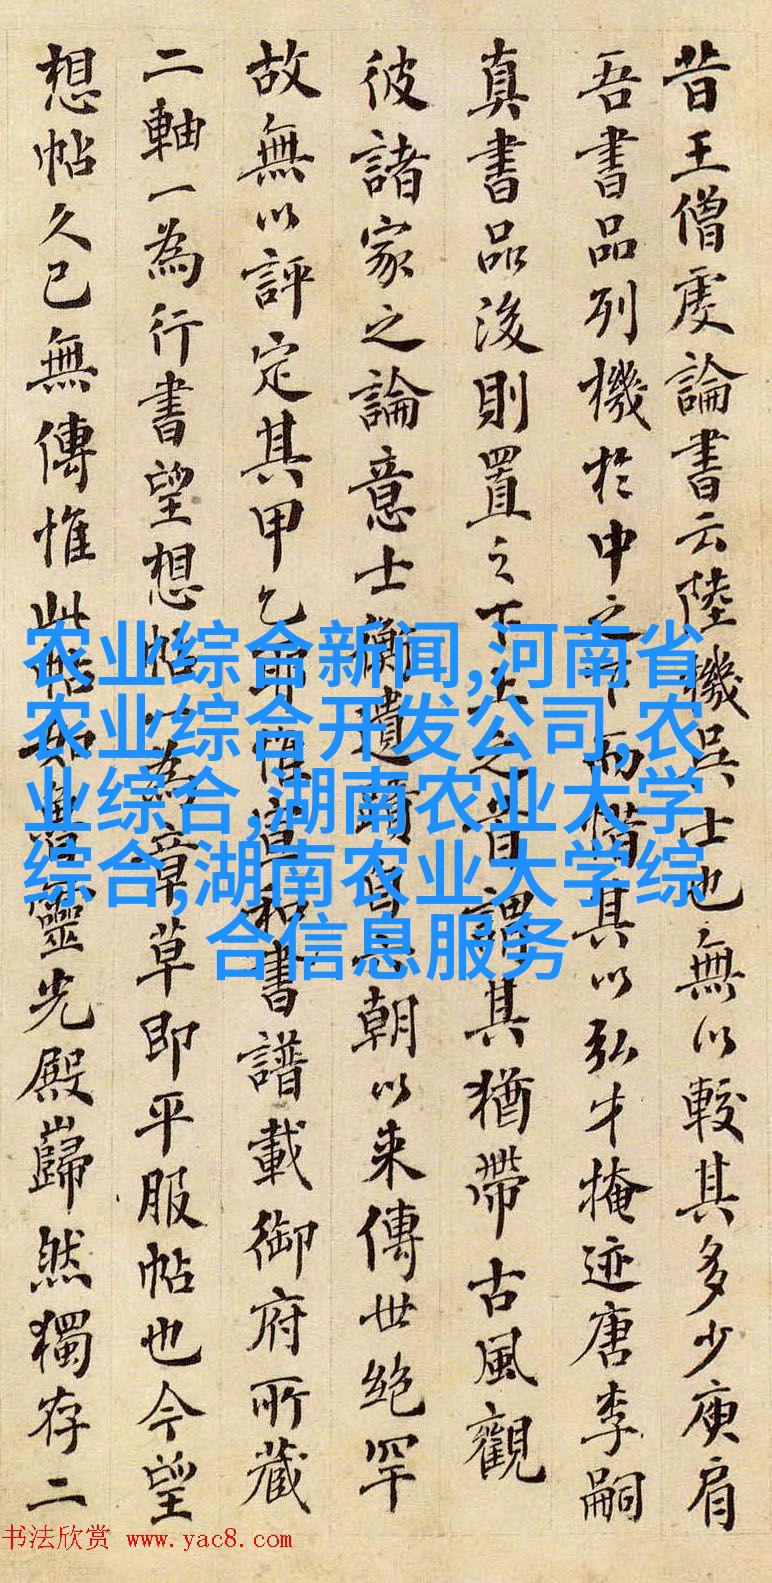 昔王僧虔論書云陸機吳士也無以較其多少庾肩
吾書品列機於中之下而惜其以弘才掩迹唐李嗣
真書品後則置之下上之首謂其猶帶古風觀
彼諸家之論意士衡遺蹟自六朝以来傳世絶罕
故無以評定其甲乙耶惟宣和書譜載御府所藏
二軸一為行書望想帖一為章草即平服帖也今望
想帖久已無傳惟此帖如魯靈光殿巋然獨存二
农业综合新闻,河南省
农业综合开发公司,农
业综合,湖南农业大学
综合,湖南农业大学综
合信息服务
书法欣赏 www.yac8.com